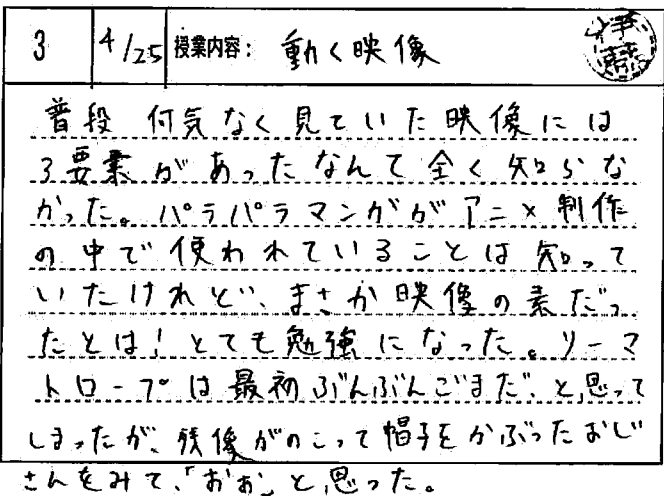 3 4/25 授業内容: 動く映像
普段何気なく見ていた映像には
3要素があったなんて全く知らな
かった。パラパラマンガがアニメ制作
の中で使われていることは知って
いたけれど、まさか映像の素だっ
たとは!とても勉強になった。ソーマ
トロープは最初ぶんぶんごまだ、と思って
しまったが、残像がのこって帽子をかぶったおじ
さんをみて、「おぉ」と思った。